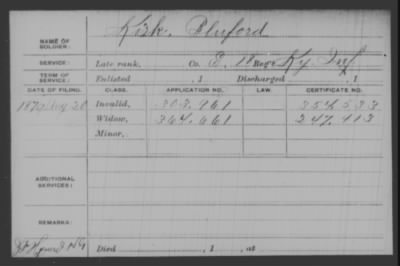 NAME OF SOLDIER: Kirk, Pluford
SERVICE: Late rank, Co. E, 18 Reg't Ky Inf.
TERM OF SERVICE: Enlisted , 1 Discharged , 1
DATE OF FILING. CLASS. APPLICATION NO. LAW. CERTIFICATE NO.
1879 Aug 20 Invalid, 303.961 354.533
Widow, 364.661 247.413
Minor,
ADDITIONAL SERVICES:
REMARKS:
Died , 1 , at